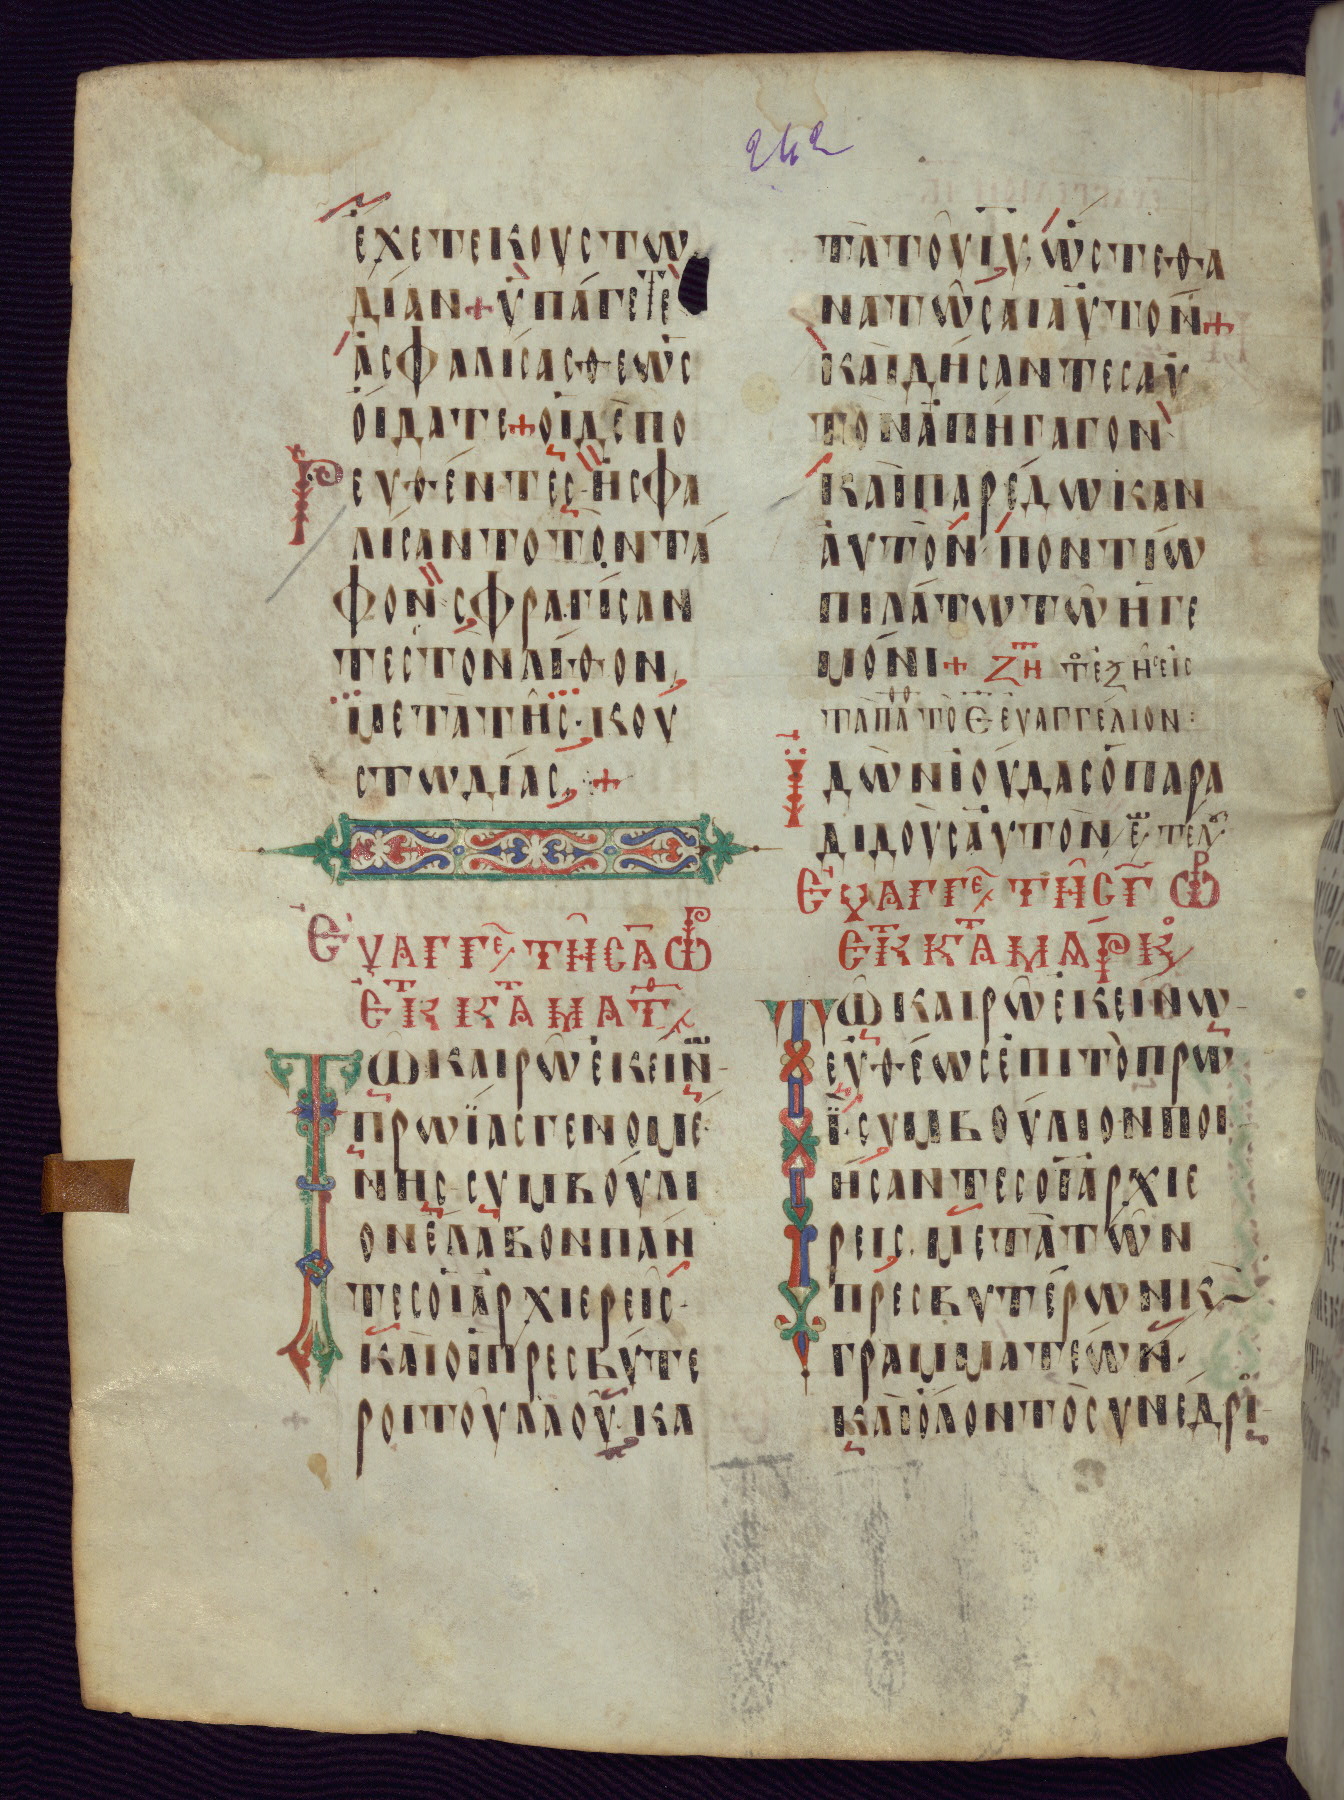 242
ἔχετε κουστω
δίαν + ὑπάγετε
ἀσφαλίσασθε ὡς
οἴδατε + οἱ δὲ πο
ρευθέντες ἠσφα
λίσαντο τὸν τά
φον σφραγίσαν
τες τὸν λίθον
μετὰ τῆς κου
στωδίας +
Εὐαγγε τῆς Α ὥρ
ἐκ κτ Ματθ
Τῶ καιρῶ ἐκείν
πρωΐας γενομέ
νης συμβούλι
ον ἔλαβον πάν
τες οἱ ἀρχιερεῖς
καὶ οἱ πρεσβύτε
ροι τοῦ λαοῦ κα
τὰ τοῦ ιυ ὥστε θα
νατῶσαι αὐτόν +
καὶ δήσαντες αὐ
τὸν ἀπήγαγον
καὶ παρέδωκαν
αὐτὸν ποντίω
πιλάτω τῶ ἡγε
μόνι + ζητ
τὰ πάθ τὸ Ε εὐαγγέλιον :
Ἰδὼν ἰούδας ὁ παρα
διδοὺς αὐτὸν τελ
Εὐαγγε τῆς Γ ὥρ
ἐκ κτ Μάρκ
Τῶ καιρῶ ἐκείνω
εὐθέως ἐπὶ τὸ πρω
ῒ συμβούλιον ποι
ήσαντες οἱ ἀρχιε
ρεῖς μετὰ τῶν
πρεσβυτέρων κ
γραμματέων
καὶ ὅλον τὸ συνέδρι